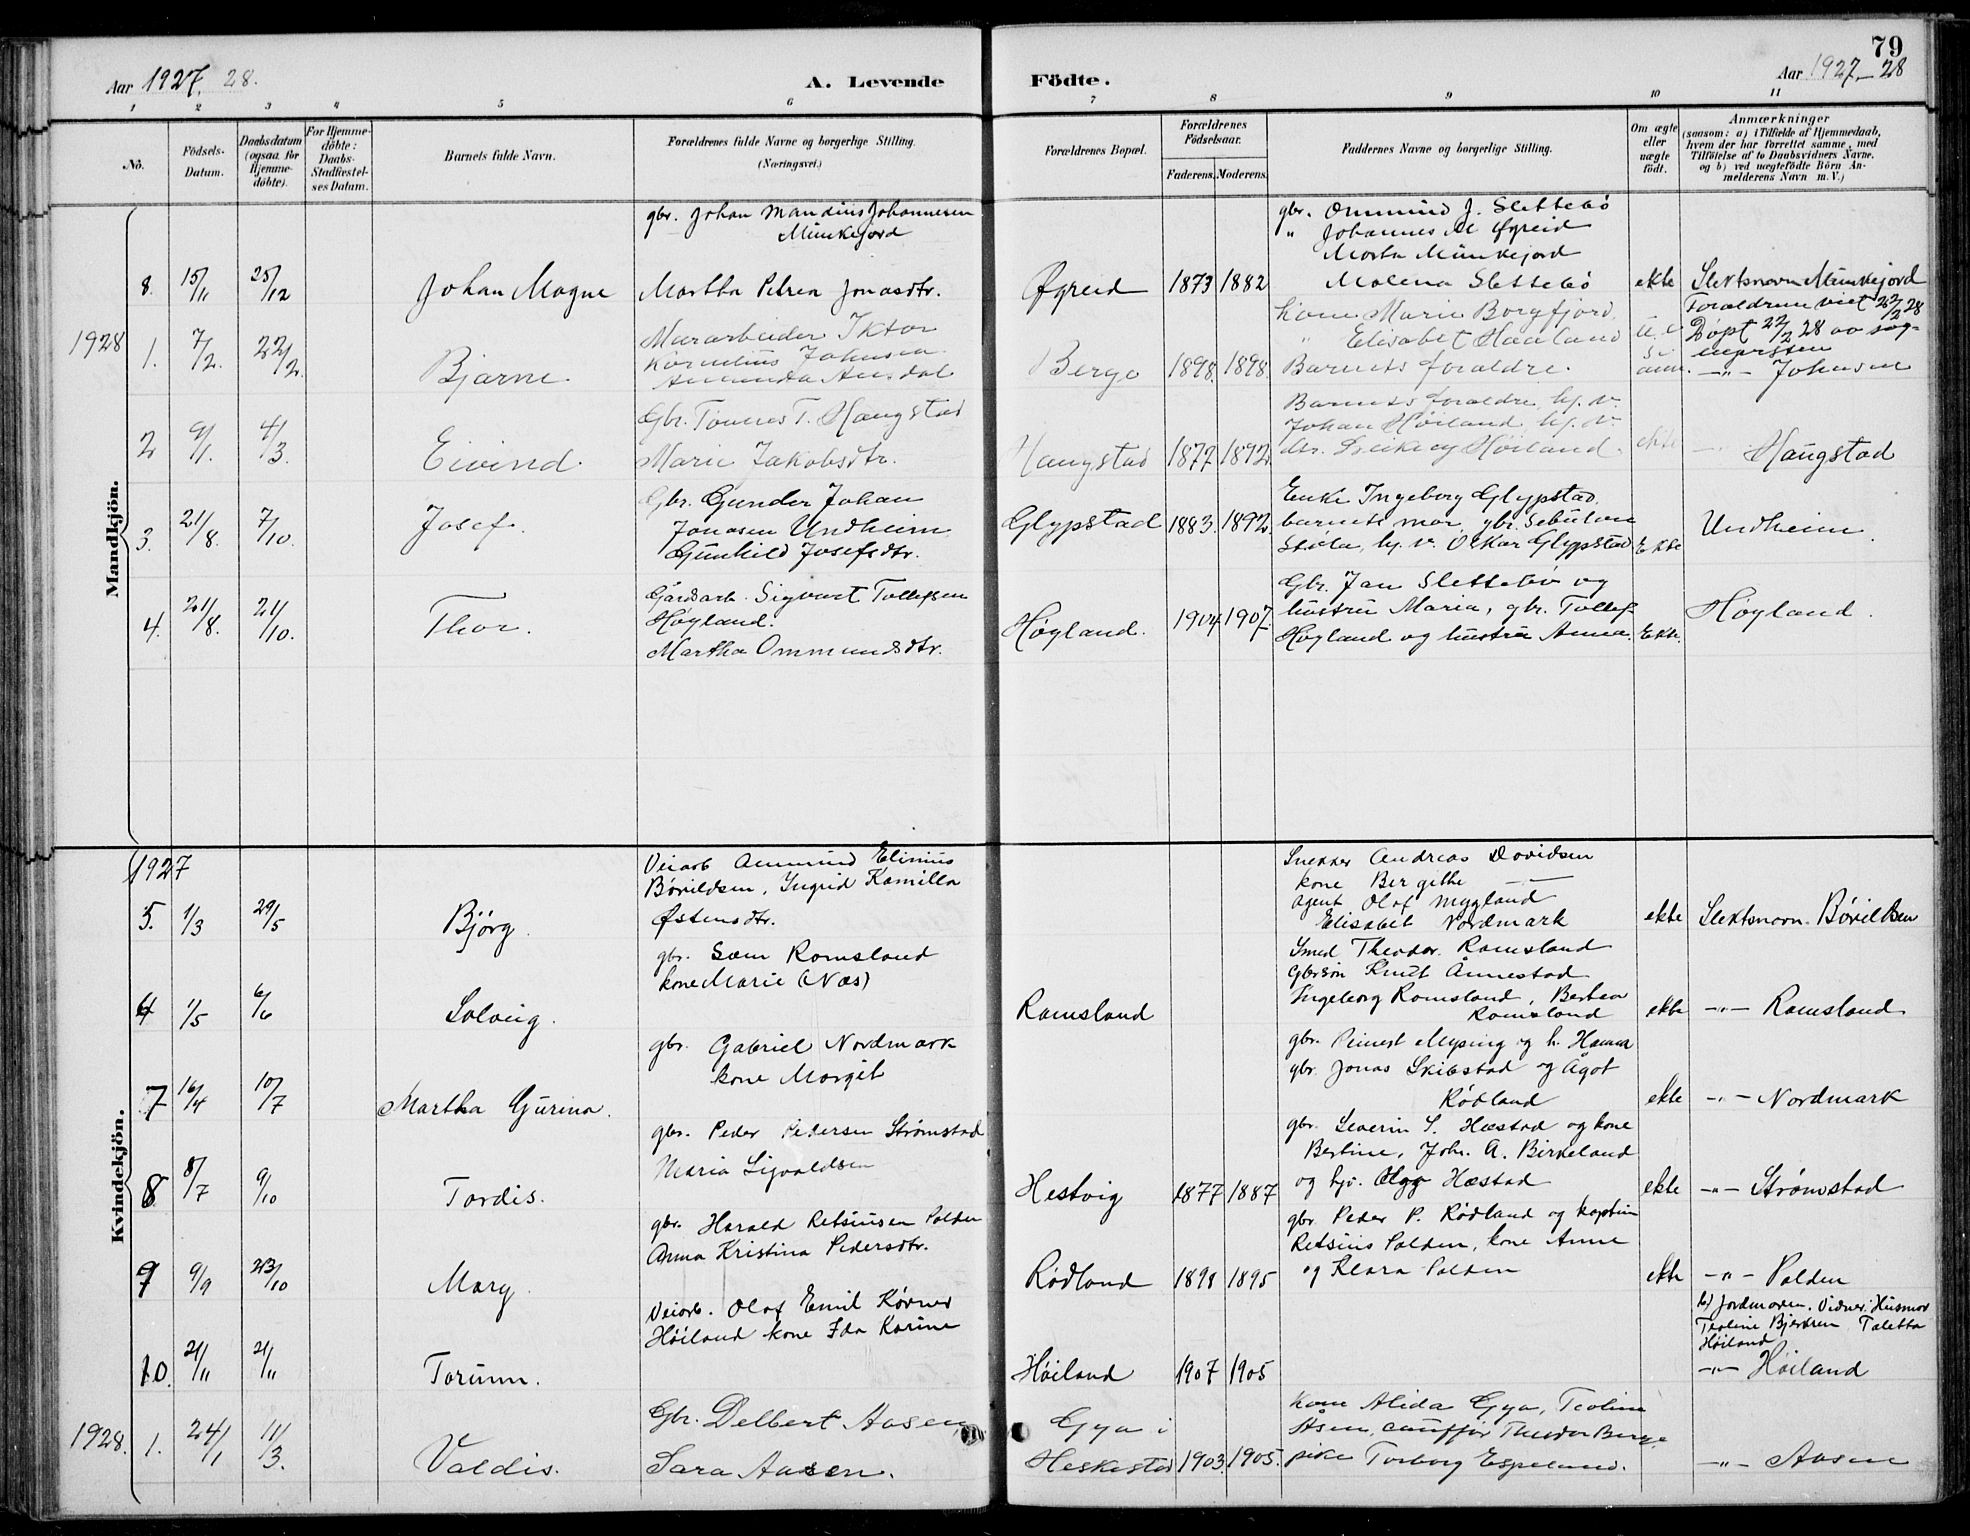 79
Aar 1927. 28.
A. Levende
Födte.
Aar 1927-28
1 2 3 4 5 6 7 8 9 10 11
No.
Födsels-Datum.
Daabsdatum (ogsaa for Hjemme-döbte).
For Hjemme-döbte: Daabs-Stadfæstel-ses Datum.
Barnets fulde Navn.
Forældrenes fulde Navne og borgerlige Stilling. (Næringsvei.)
Forældrenes Bopæl.
Forældrenes Födselsaar.
Faderens. Moderens.
Faddernes Navne og borgerlige Stilling.
Om ægte eller uægte födt.
Anmærkninger
(saasom: a) i Tilfælde af Hjemmedaab, hvem der har forrettet samme, med Tilföielse af to Daabsvidners Navne, og b) ved uægtefödte Börn An-melderens Navn m. V.)
Mandkjön.
gbr. Johan Mandius Johannesen
Munkejord
gbr. Ommund J. Slettebø
" Johannes M Øgreid
Marta Munkejord
8. 15/11 25/12 Johan Magne Martha Petrea Jonasdtr. Øgreid 1873 1882 Malena Slettebø ekte Slektsnavn Munkejord
Foraldrene viet 22/2 28
Døpt 22/2 28 av sog-
nepresten
1928
Murarbeider Iktor
Kornelius Johnsen
Amunda Ausdal
Kone Marie Borgfjord
" Elisabet Haaland
1. 7/2. 22/2. Bjarne Berge 1898. 1898. Barnets foraldre. -"- Johnsen
Gbr. Tønnes T. Haugstad
Marie Jakobsdtr.
Barnets foraldre, hj. v.
Johan Høiland, hj. v.
2 9/1. 4/3. Eivind. Haugstad 1877 1892. Høiland. ekte -"- Haugstad
Gbr. Gunder Johan
Jonasen Undheim
Gunhild Josefsdtr.
Enke Ingeborg Glypstad,
barnets mor, gbr. Sebulon
Støla, hj. v. Oskar Glypstad
3. 21/8. 7/10. Josef. Glypstad 1883. 1892. Ekte Undheim.
Gårdsarb. Sigvart Tollefsen
Høyland.
Martha Ommundsdtr.
Gbr. Jan Slettebø og
hustru Maria, gbr. Tollef
Høyland og hustru Anna.
4. 21/8. 21/10. Thor. Høyland. 1904 1907. Ekte. Høyland.
Kvindekjön.
1927
Veiarb Ammund Elinius
Bøvildsen, Ingrid Kamilla
Østensdtr.
Snekker Andreas Davidsen
kone Bergithe
agent Olaf Mygland
Elisabet Nordmark
5. 1/3 29/5 Bjørg. ekte Slektsnavn. Bøvildsen
gbr. Sam Ramsland
kone Marie (Næs)
Smed Theodor Ramsland
Gbrsøn Knut Ånnestad
Ingeborg Ramsland, Berthea
Ramsland
6 1/5 6/6 Solveig. Ramsland ekte -"- Ramsland
gbr. Gabriel Nordmark
kone Margit
gbr. Peinert Myging og h. Hanna
gbr. Jonas Skibstad og Ågot
Rødland
7 16/4 10/7 Martha Gurina. ekte -"- Nordmark
gbr. Peder Pedersen Strømstad
Maria Sigvaldsen
gbr. Severin S. Hæstad og kone
Bertine, Johs. A. Birkeland
og hjv. Olga Hæstad
8 8/7 9/10 Tordis. Hestvig 1877 1887 ekte -"- Strømstad
gbr. Harald Retsiusen Salden
Anna Kristina Pedersdtr.
gbr. Peder P. Rødland og kaptein
Retsius Salden, kone Anne
og Klara Salden
9 9/9 23/10 Mary. Rødland 1898 1895 ekte -"- Salden
Veiarb. Olaf Emil Kørner
Høiland kone Ida Karine
Jordmoren. Vidner: Husmor
Teoline Bjerdren Taletta
Høiland
10. 21/11 21/11 Torunn. Høiland 1907 1905 -"- Høiland
1928.
Gbr. Delbert Aasen,
Sara Aasen.
Gya i
Heskestad
kone Alida Gya, Teoline
Åsen, chauffør Theodor Berge,
pike Torborg Espeland.
1. 24/1 11/3. Valdis. 1903. 1905. -"- Aasen